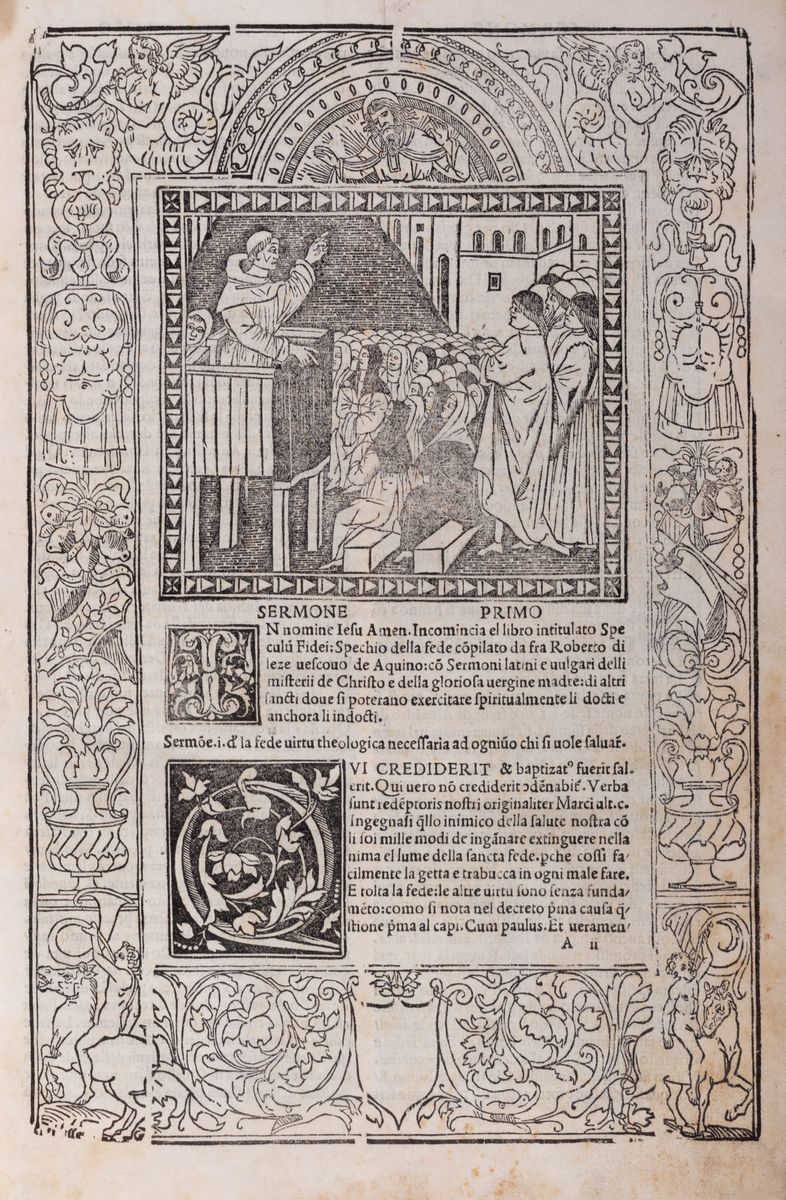 SERMONE PRIMO
IN nomine Iesu Amen. Incomincia el libro intitulato Spe
culū Fidei: Spechio della fede cōpilato da fra Roberto di
leze uescouo de Aquino: cō Sermoni latini e uulgari delli
misterii de Christo e della gloriosa uergine madre: di altri
sancti doue si poterano exercitare spiritualmente li docti e
anchora li indocti.
Sermōe. i. d' la fede uirtu theologica necessaria ad ogniūo chi si uole saluar.
QVI CREDIDERIT & baptizatꝰ fuerit sal
erit. Qui uero nō crediderit ↄdēnabit̄. Verba
sunt redēptoris nostri originaliter Marci ult. c.
Ingegnasi q̄llo inimico della salute nostra cō
li soi mille modi de ingānare extinguere nella
nima el lume della sancta fede. ꝑche cossi fa/
cilmente la getta e trabucca in ogni male fare.
E tolta la fede: le altre uirtu sono senza funda/
mēto: como si nota nel decreto p̄ma causa q̄/
stione p̄ma al capi. Cum paulus. Et ueramen/
A ii